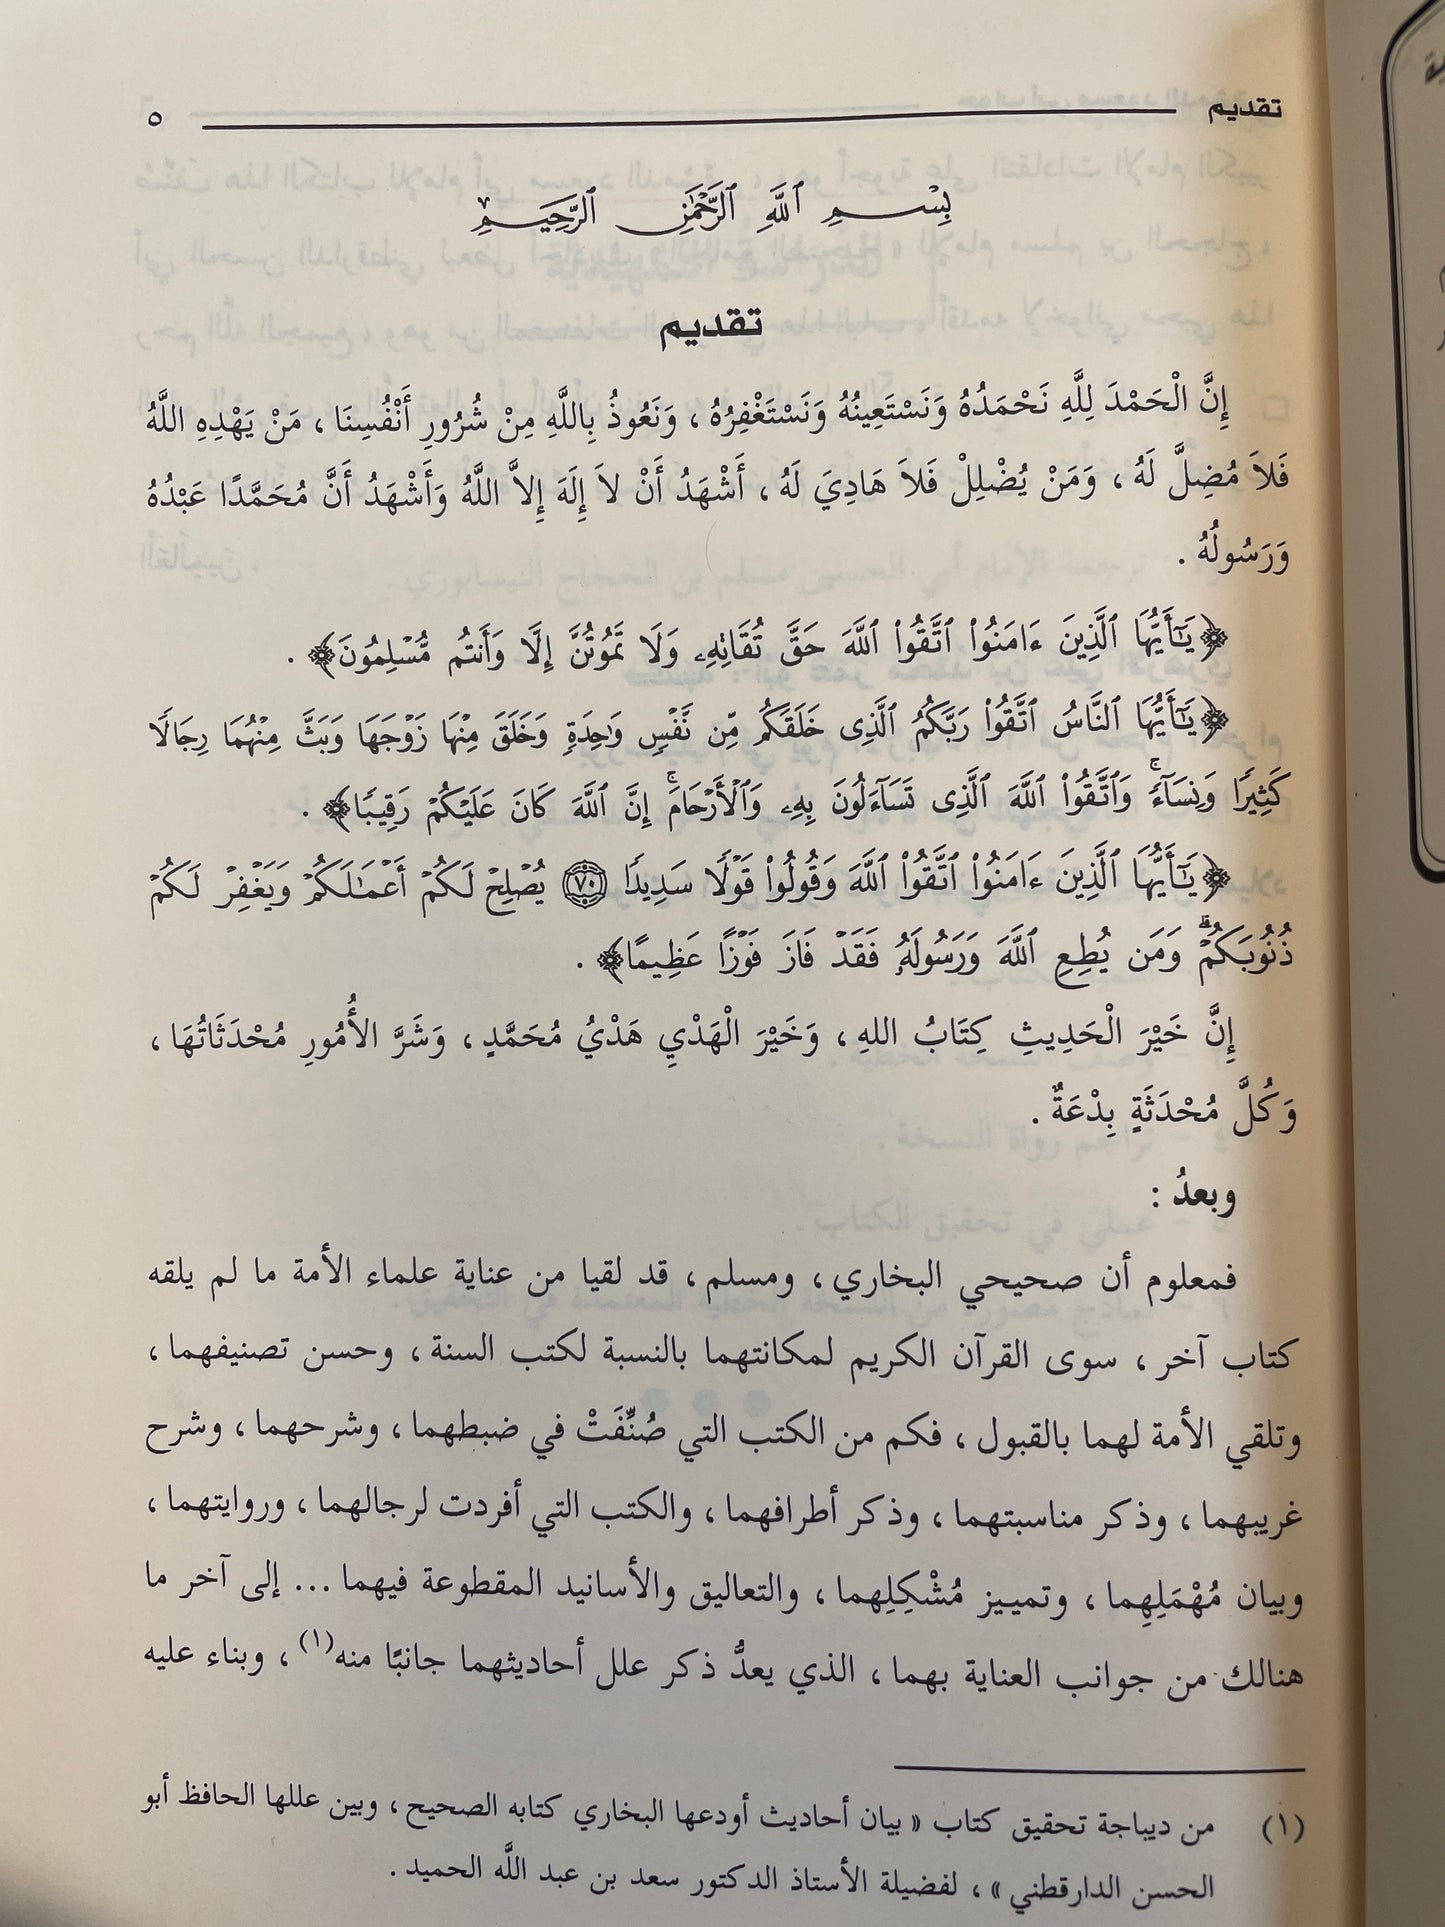 تقديم ٥
بِسْمِ ٱللَّهِ ٱلرَّحْمَٰنِ ٱلرَّحِيمِ
تقديم
إِنَّ الْحَمْدَ لِلَّهِ نَحْمَدُهُ وَنَسْتَعِينُهُ وَنَسْتَغْفِرُهُ ، وَنَعُوذُ بِاللَّهِ مِنْ شُرُورِ أَنْفُسِنَا ، مَنْ يَهْدِهِ اللَّهُ
فَلاَ مُضِلَّ لَهُ ، وَمَنْ يُضْلِلْ فَلاَ هَادِيَ لَهُ ، أَشْهَدُ أَنْ لاَ إِلَهَ إِلاَّ اللَّهُ وَأَشْهَدُ أَنَّ مُحَمَّدًا عَبْدُهُ
وَرَسُولُهُ .
﴿يَٰٓأَيُّهَا ٱلَّذِينَ ءَامَنُوا۟ ٱتَّقُوا۟ ٱللَّهَ حَقَّ تُقَاتِهِۦ وَلَا تَمُوتُنَّ إِلَّا وَأَنتُم مُّسْلِمُونَ﴾ .
﴿يَٰٓأَيُّهَا ٱلنَّاسُ ٱتَّقُوا۟ رَبَّكُمُ ٱلَّذِى خَلَقَكُم مِّن نَّفْسٍ وَٰحِدَةٍ وَخَلَقَ مِنْهَا زَوْجَهَا وَبَثَّ مِنْهُمَا رِجَالًا
كَثِيرًا وَنِسَآءً ۚ وَٱتَّقُوا۟ ٱللَّهَ ٱلَّذِى تَسَآءَلُونَ بِهِۦ وَٱلْأَرْحَامَ ۚ إِنَّ ٱللَّهَ كَانَ عَلَيْكُمْ رَقِيبًا﴾ .
﴿يَٰٓأَيُّهَا ٱلَّذِينَ ءَامَنُوا۟ ٱتَّقُوا۟ ٱللَّهَ وَقُولُوا۟ قَوْلًا سَدِيدًا ٧٠ يُصْلِحْ لَكُمْ أَعْمَٰلَكُمْ وَيَغْفِرْ لَكُمْ
ذُنُوبَكُمْ ۗ وَمَن يُطِعِ ٱللَّهَ وَرَسُولَهُۥ فَقَدْ فَازَ فَوْزًا عَظِيمًا﴾ .
إِنَّ خَيْرَ الْحَدِيثِ كِتَابُ اللهِ ، وَخَيْرَ الْهَدْيِ هَدْيُ مُحَمَّدٍ ، وَشَرَّ الأُمُورِ مُحْدَثَاتُهَا ،
وَكُلَّ مُحْدَثَةٍ بِدْعَةٌ .
وبعدُ :
فمعلوم أن صحيحي البخاري ، ومسلم ، قد لقيا من عناية علماء الأمة ما لم يلقه
كتاب آخر ، سوى القرآن الكريم لمكانتهما بالنسبة لكتب السنة ، وحسن تصنيفهما ،
وتلقي الأمة لهما بالقبول ، فكم من الكتب التي صُنِّفَتْ في ضبطهما ، وشرحهما ، وشرح
غريبهما ، وذكر مناسبتهما ، وذكر أطرافهما ، والكتب التي أفردت لرجالهما ، وروايتهما ،
وبيان مُهْمَلِهِما ، وتمييز مُشْكِلِهما ، والتعاليق والأسانيد المقطوعة فيهما ... إلى آخر ما
هنالك من جوانب العناية بهما ، الذي يعدُّ ذكر علل أحاديثهما جانبًا منه(١) ، وبناء عليه
(١) من ديباجة تحقيق كتاب « بيان أحاديث أودعها البخاري كتابه الصحيح ، وبين عللها الحافظ أبو
الحسن الدارقطني » ، لفضيلة الأستاذ الدكتور سعد بن عبد اللَّه الحميد .